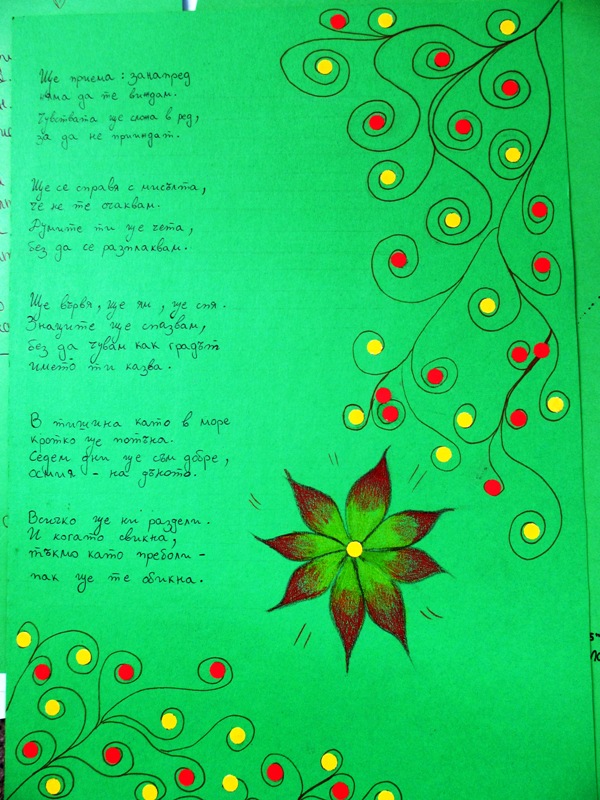 Ще приема: занапред
няма да те виждам.
Чувствата ще сложа в ред,
за да не прииждат.
Ще се справя с мисълта,
че не те очаквам.
Думите ти ще чета,
без да се разплаквам.
Ще вървя, ще ям, ще спя.
Знаците ще спазвам,
без да чувам как градът
името ти казва.
В тишина като в море
кротко ще потъна.
Седем дни ще съм добре,
осмия - на дъното.
Всичко ще ни раздели.
И когато свикна,
тъкмо като преболи -
пак ще те обикна.